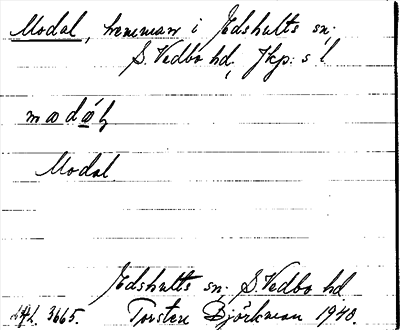 Modal, hemman i Edshults sn;
S. Vedbo hd, Jkp: s l
Modal
Edshults sn; S. Vedbo hd
3665. Torsten Björkman 1940.